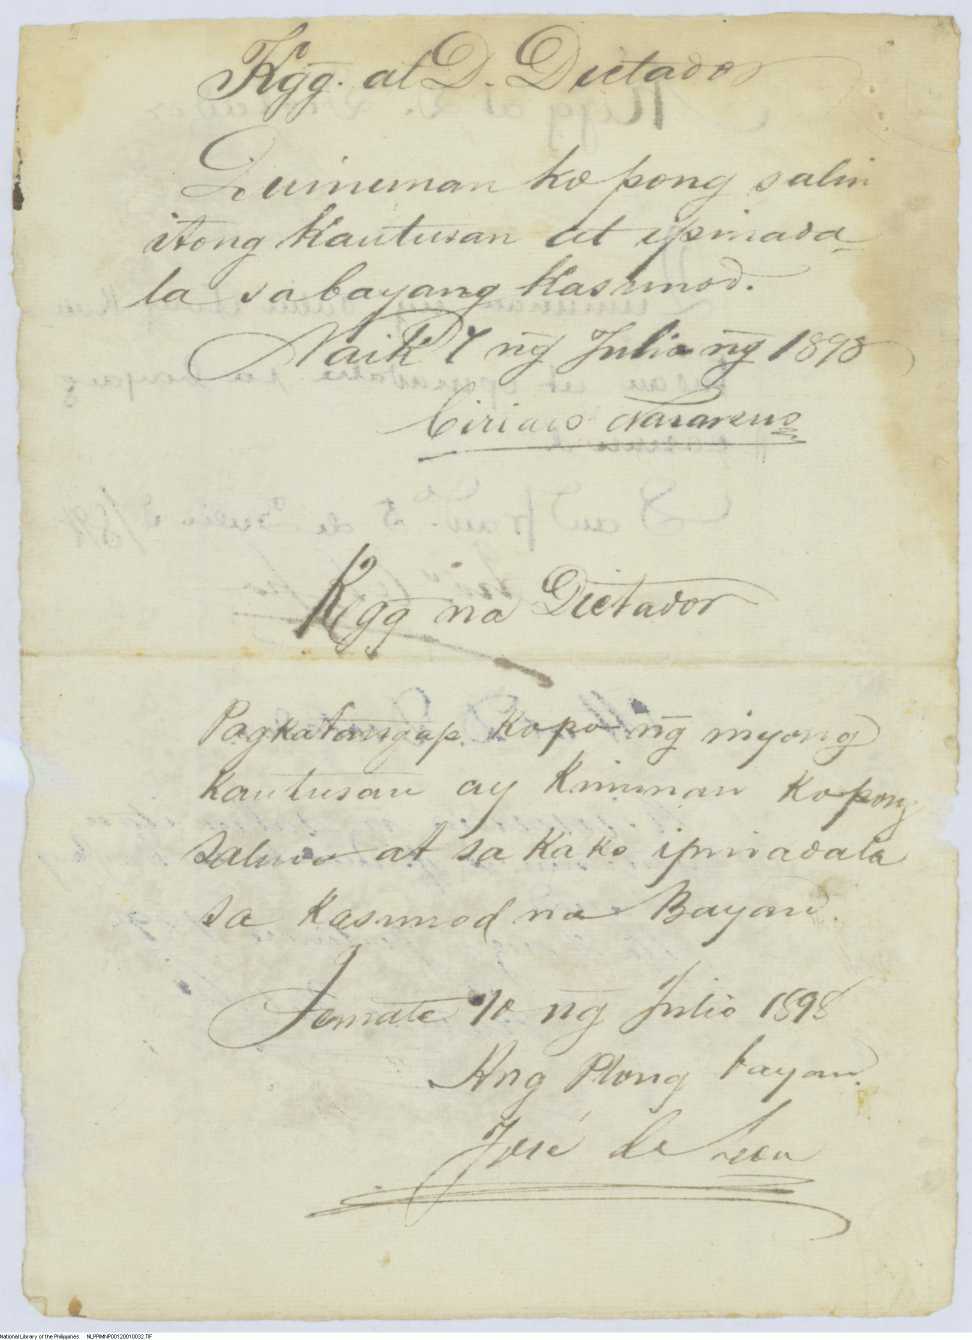 Kgg. at D. Dictador
Quinunan ko pong salin
itong Kautusan at ipinada-
la sa bayang Kasunod.
Naik 7 ng̃ Julio ng̃ 1898
Ciriaco Nazareno
Kgg na Dictador
Pagkatangap kopo ng̃ inyong
Kautusan ay Kinunan Ko pong
salin at sa Kako ipinadala
sa Kasunod na Bayan.
Ternate 10 ng̃ Julio 1898
Ang Plong bayan.
José de Leon
National Library of the Philippines NLPPIMNP00120010032.TIF